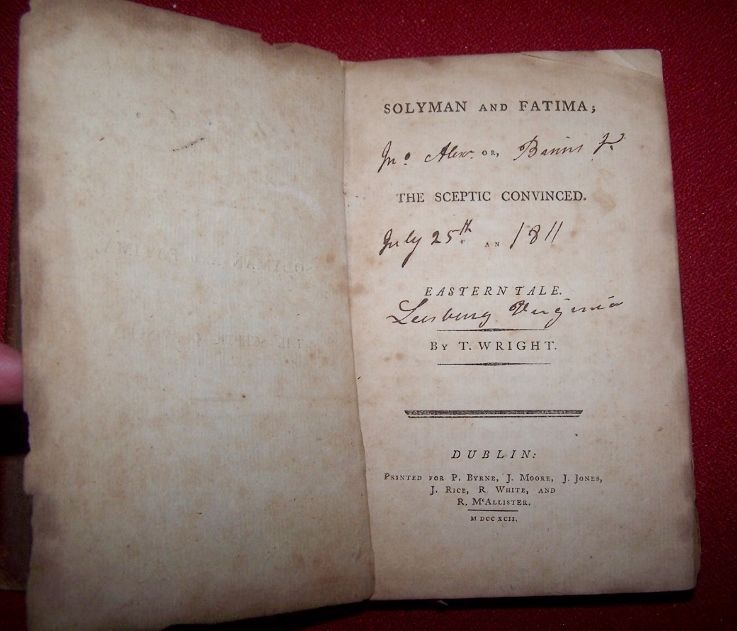 SOLYMAN AND FATIMA;
Jno Alexr OR, Binns Jr
THE SCEPTIC CONVINCED.
July 25th AN 1811
EASTERN TALE.
Leesburg Virginia
BY T. WRIGHT.
DUBLIN:
PRINTED FOR P. BYRNE, J. MOORE, J. JONES,
J. RICE, R. WHITE, AND
R. McALLISTER.
M DCC XCII.